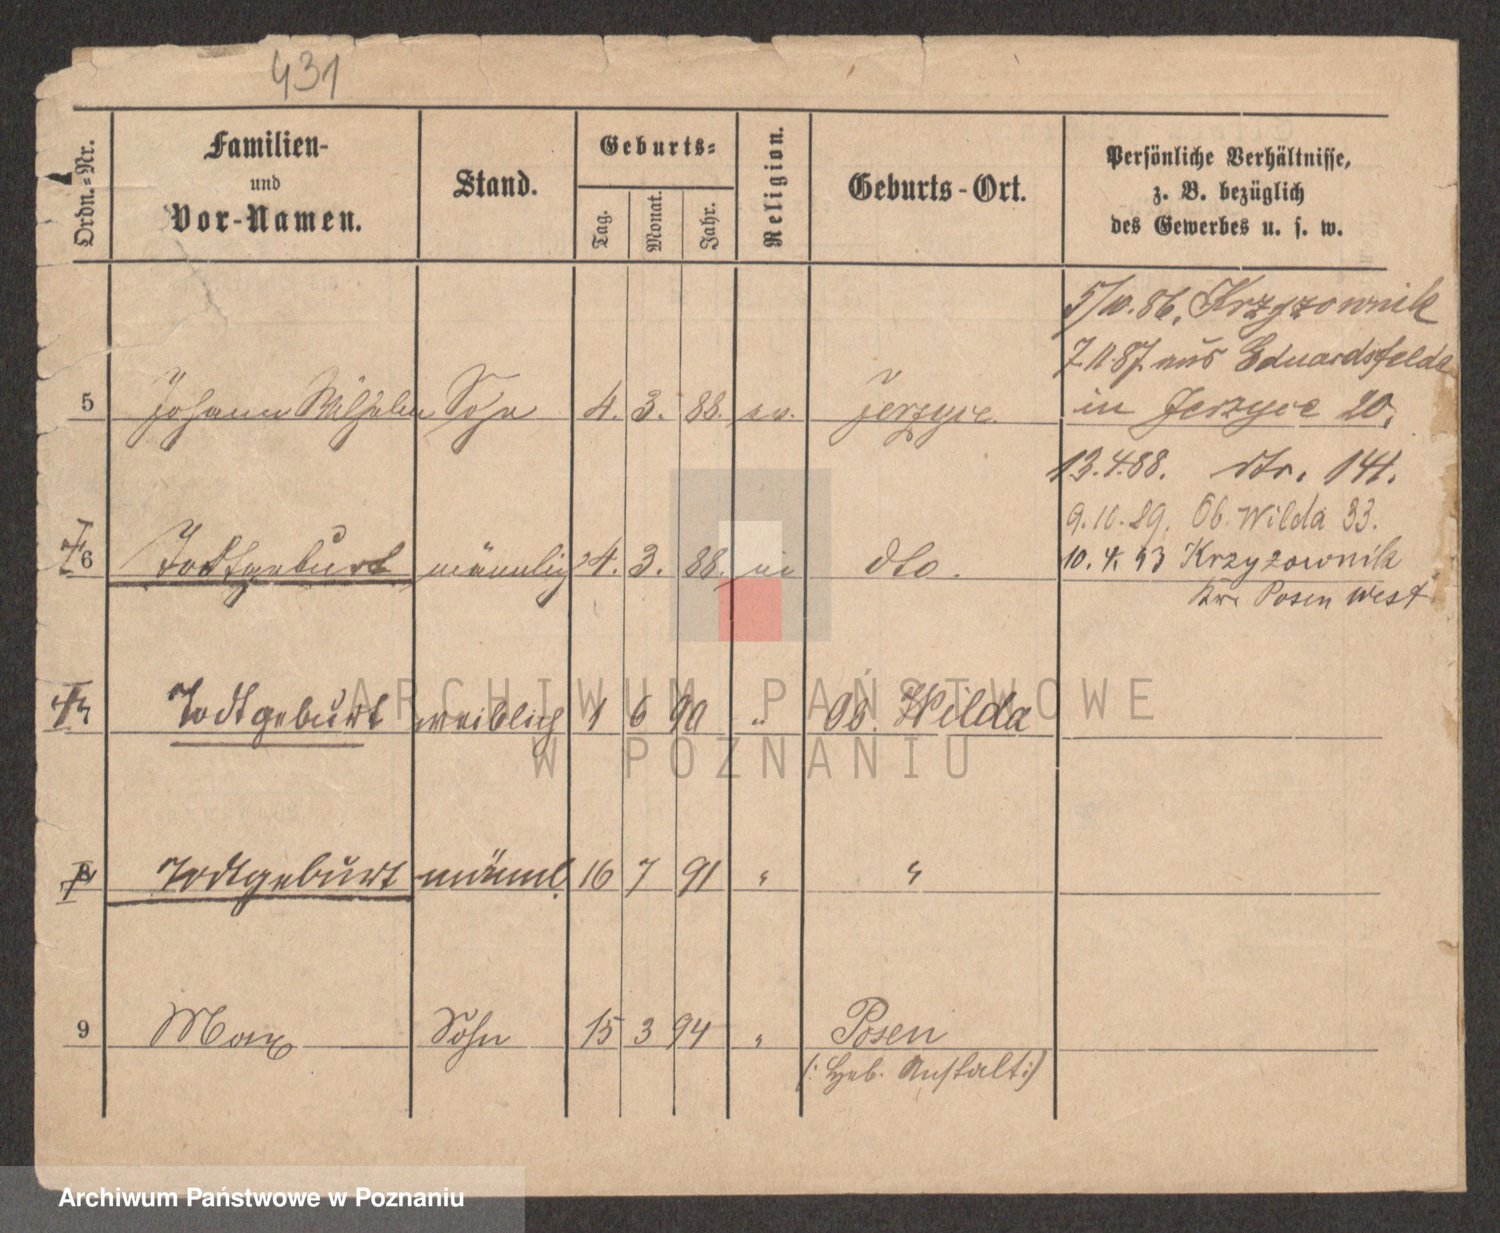 431
Ordn.=Nr.
Familien-
und
Vor-Namen.
Stand.
Geburts=
Tag.
Monat.
Jahr.
Religion.
Geburts-Ort.
Persönliche Verhältnisse,
z. B. bezüglich
des Gewerbes u. s. w.
5/10.86. Krzyzownik
7.11.87. aus Eduardsfelde
5 Johann Wilhelm Sohn 4. 3. 88. ev. Jerzyce. in Jerzyce 20,
13.4.88. dto. 141.
9.10.89. Ob. Wilda 33.
6 Todtgeburt männlich 4. 3. 88. dto. 10.4.93 Krzyzownik
Posen West
7 Todtgeburt weiblich 1 6 90 " Ob. Wilda
8 Todtgeburt männl. 16 7 91 " "
9 Max Sohn 15 3 94 " Posen
(: Geb. Anstalt :)
ARCHIWUM PAŃSTWOWE
W POZNANIU
Archiwum Państwowe w Poznaniu